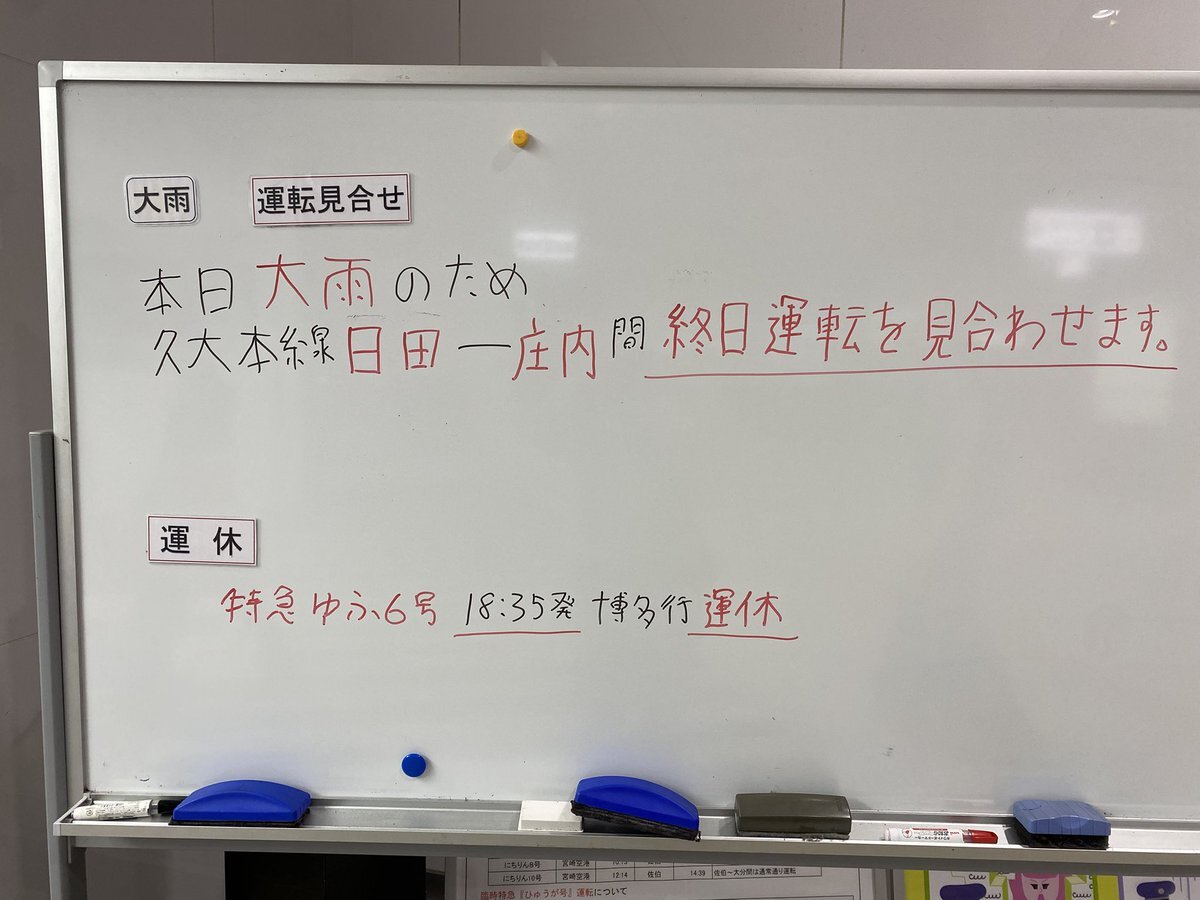 大雨 運転見合せ
本日大雨のため
久大本線日田ー庄内間終日運転を見合わせます。
運 休
特急ゆふ6号 18:35発 博多行運休
にちりん8号 宮崎空港
にちりん10号 宮崎空港 12:14 佐伯 14:39 佐伯～大分間は通常通り運転
臨時特急『ひゅうが号』運転について